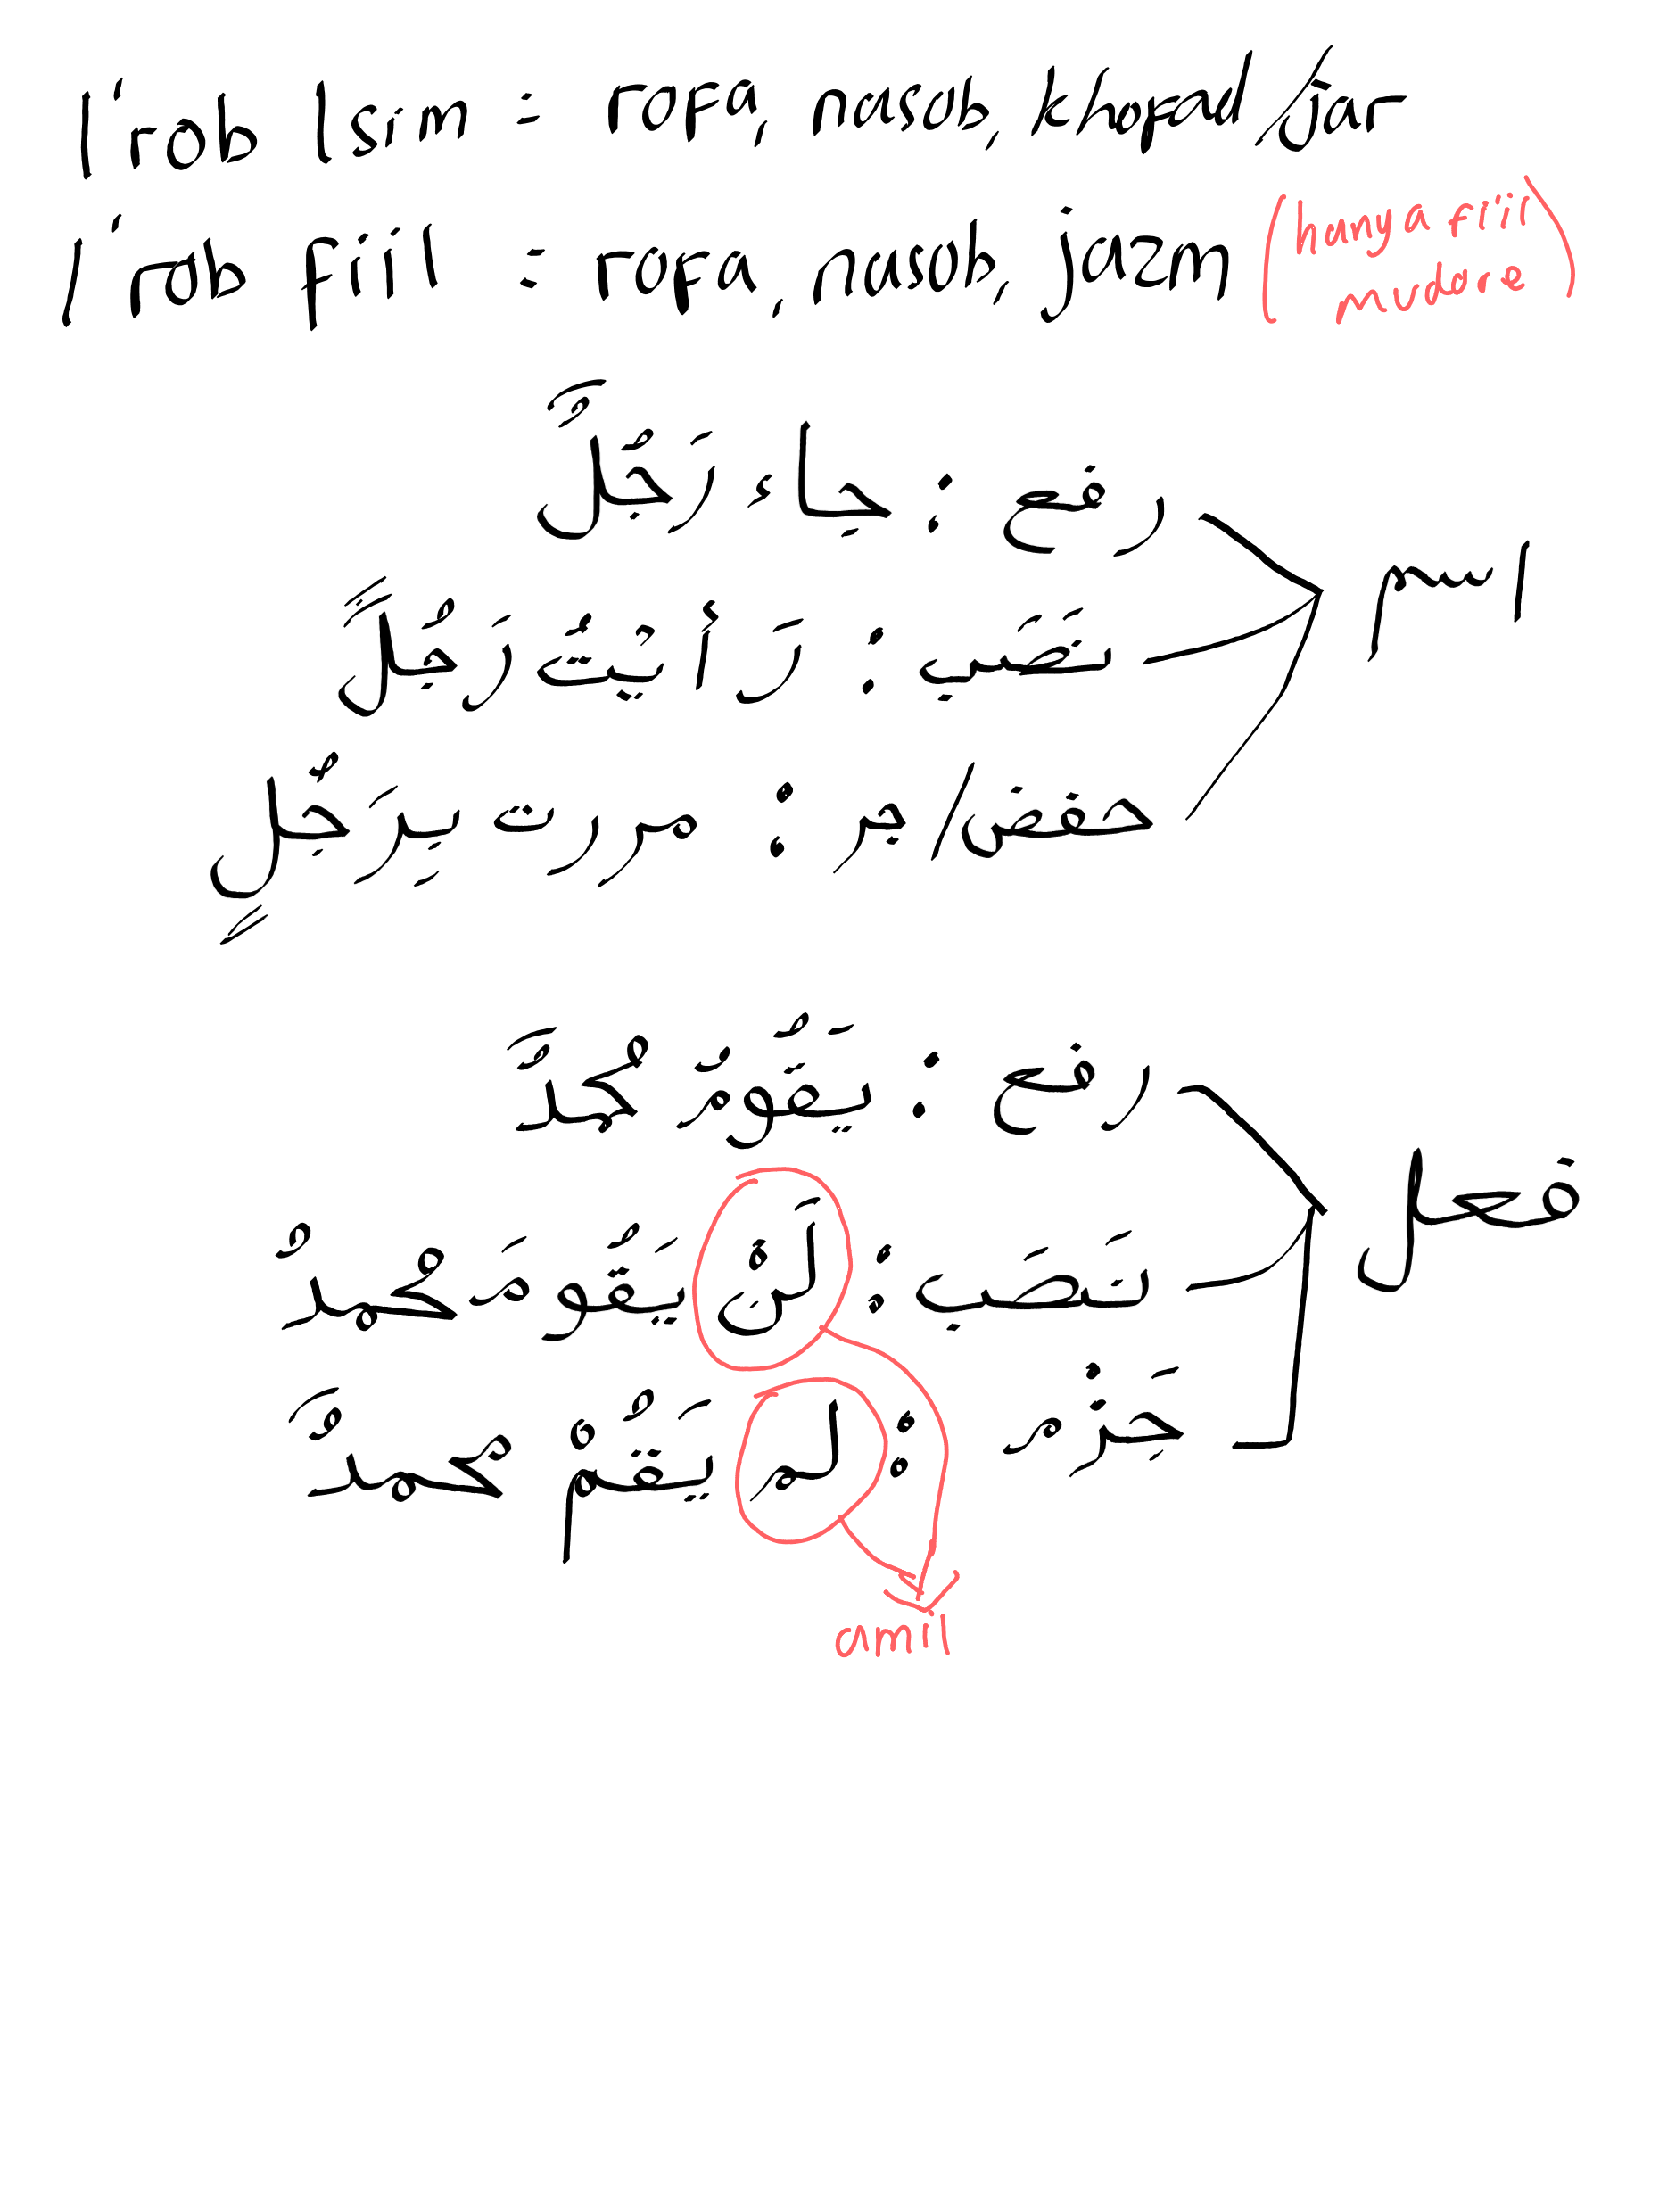 I'rob Isim : rofa, nasob, khofad/jar
I'rob fiil : rofa, nasob, jazm (hanya fiil mudore)
اسم
رفع : جاء رَجُلٌ
نصَب : رَأَيْتُ رَجُلً
حفض/جر : مررت بِرَجُلٍ
فعل
رفع : يَقُومُ مُحمدٌ
نَصَب : لَنْ يَقُومَ مُحمدٌ
جَزْم : لم يَقُمْ محمدٌ
amil